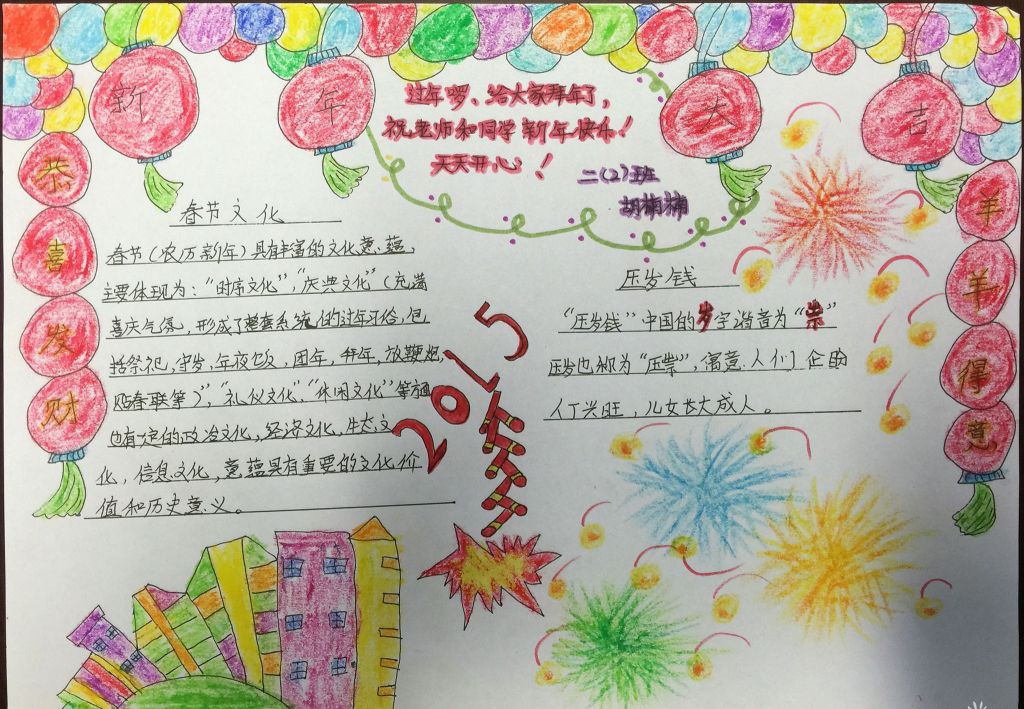 新年大吉
过年啰、给大家拜年了，
祝老师和同学新年快乐！
天天开心！
二（2）班
胡楠楠
恭喜发财
羊羊得意
春节文化
春节（农历新年）具有丰富的文化意蕴，
主要体现为："时序文化"，"庆典文化"（充满
喜庆气氛，形成了整套系统的过年习俗，包
括祭祀，守岁，年夜饭，团年，拜年，放鞭炮，
贴春联等）"，"礼仪文化"，"休闲文化"等方面
也有一定的政治文化，经济文化，生态文
化，信息文化，意蕴具有重要的文化价
值和历史意义。
2015
压岁钱
"压岁钱"中国的岁字谐音为"祟"
压岁也称为"压祟"，寓意人们企盼
人丁兴旺，儿女长大成人。